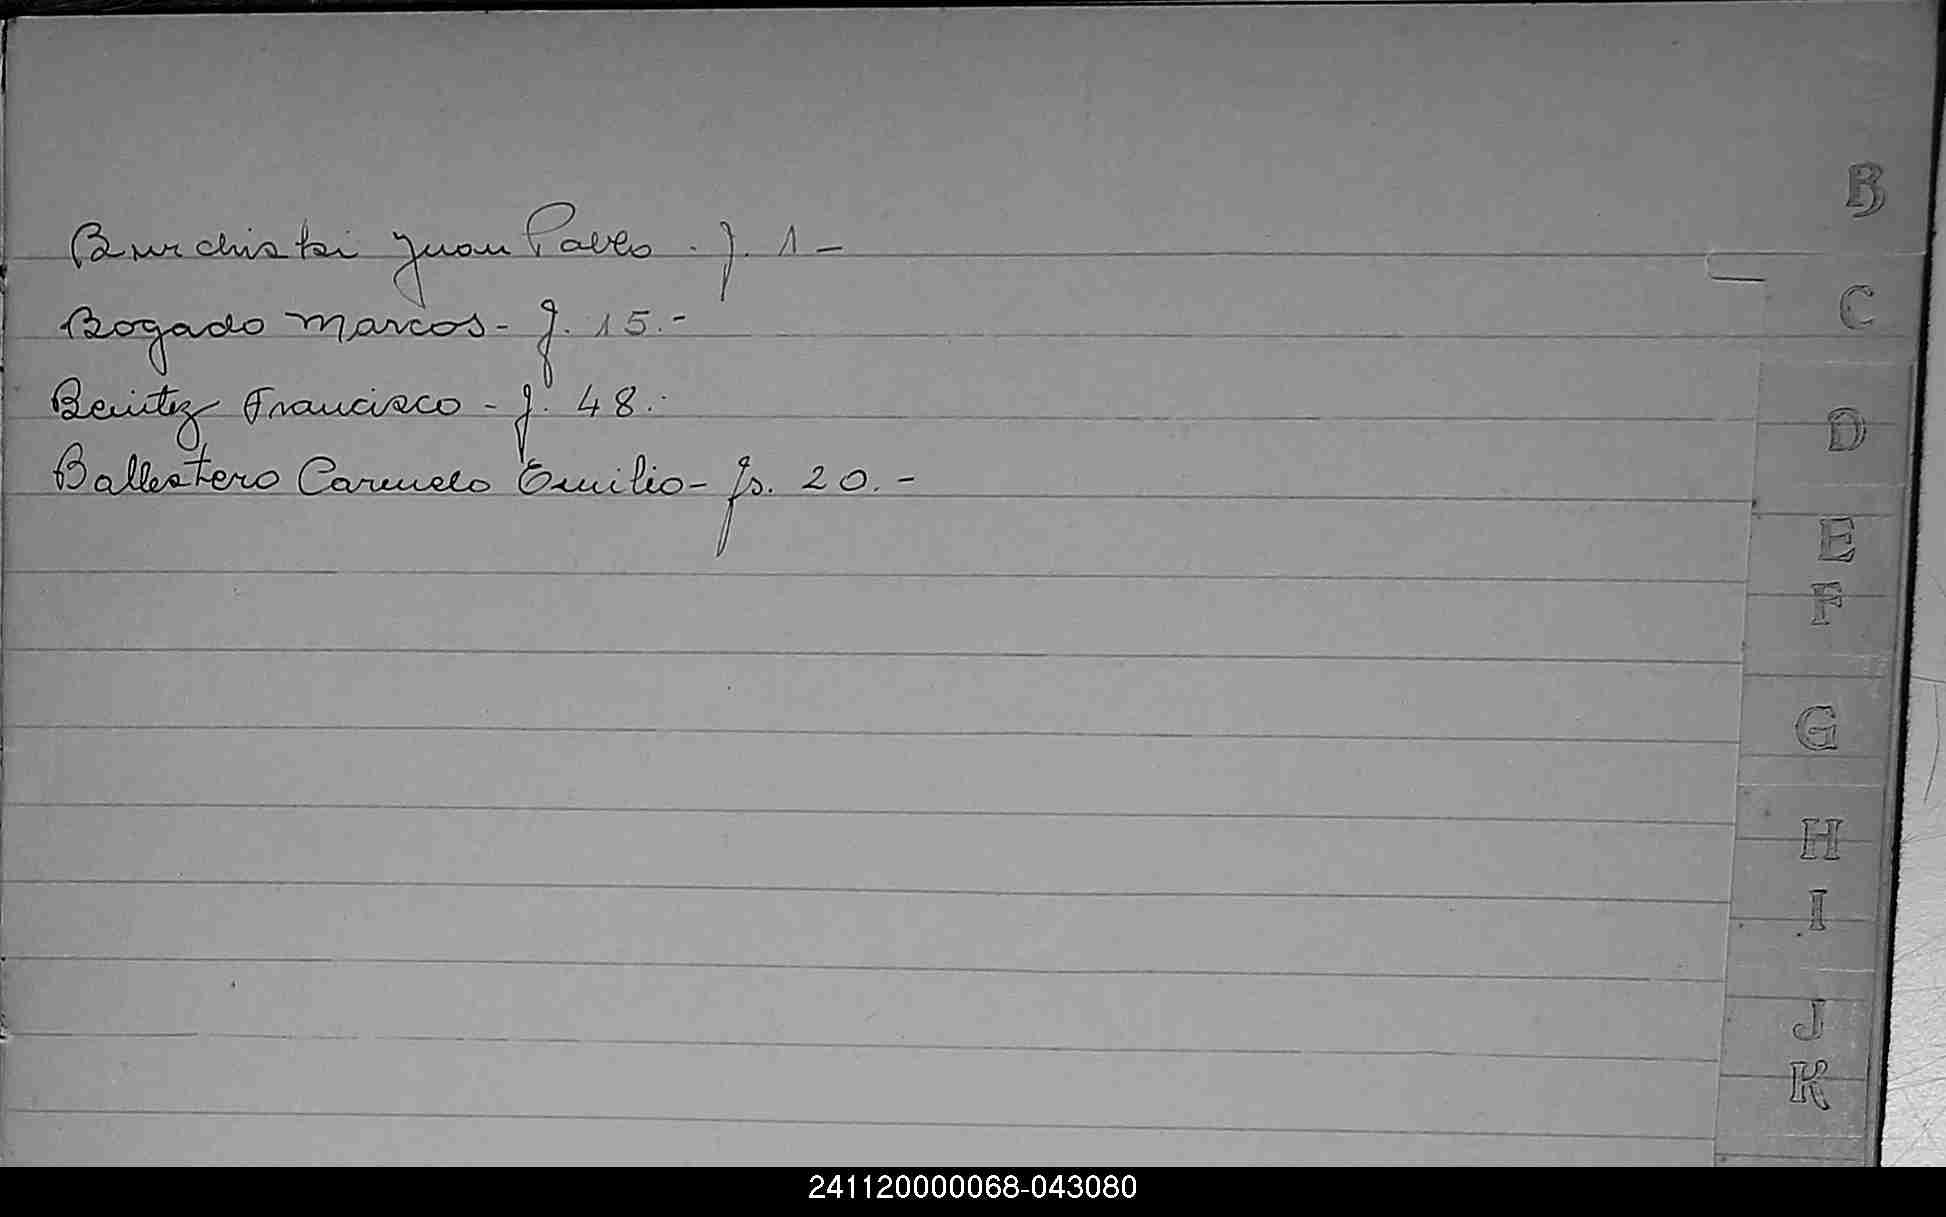 Burchiski Juan Pablo. f. 1 -
Bogado Marcos - f. 15. -
Benitez Francisco - f. 48. -
Ballestero Carmelo Emilio - fs. 20. -
B
C
D
E
F
G
H
I
J
K
241120000068-043080